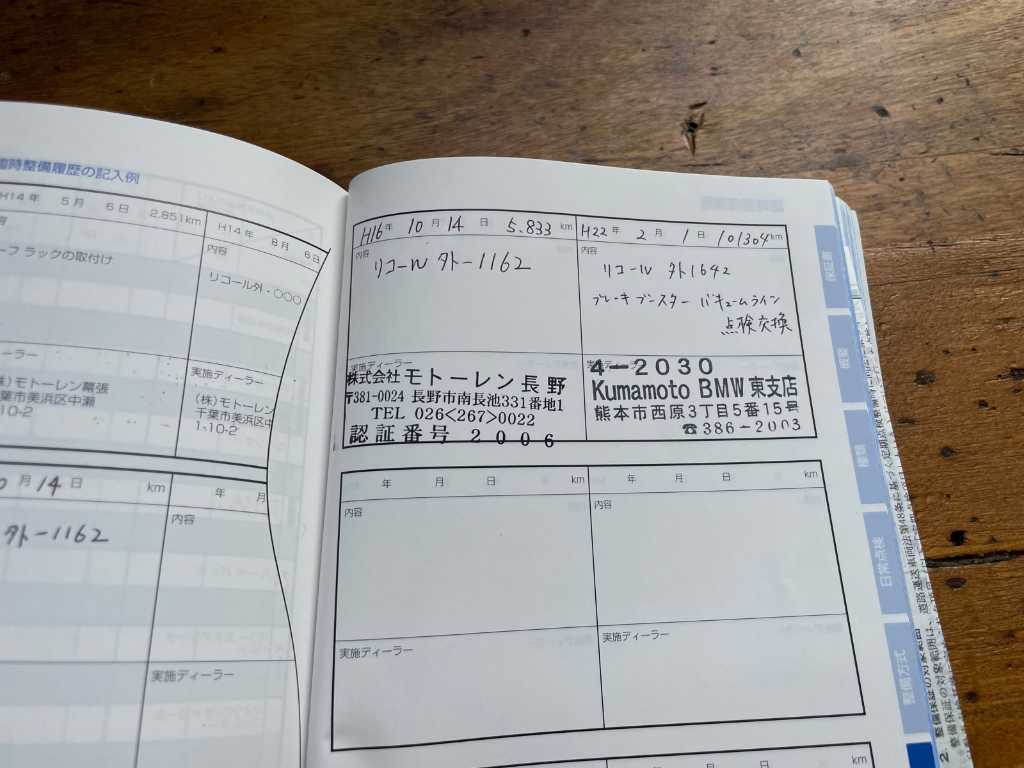 臨時整備履歴の記入例
H14年 5月 6日 2,851km
H14年 8月 6日
内容
ーフ ラックの取付け
リコール外・○○○
実施ディーラー
(株)モトーレン幕張
千葉市美浜区中瀬
1-10-2
実施ディーラー
(株)モトーレン
千葉市美浜区中
1-10-2
14日 km
年 月
外-1162
内容
実施ディーラー
H16年 10月 14日 5,833km
内容
リコール 外-1162
実施ディーラー
株式会社 モトーレン長野
〒381-0024 長野市南長池331番地1
TEL 026<267>0022
認証番号 2006
H22年 2月 1日 101304km
内容
リコール 外1642
ブレーキブースター バキュームライン
点検交換
4-2030
Kumamoto BMW 東支店
熊本市西原3丁目5番15号
☎386-2003
年 月 日 km
内容
実施ディーラー
年 月 日 km
内容
実施ディーラー
年 月 日 km
年 月 日 km
保証書
概要
種類
日常点検
整備方式